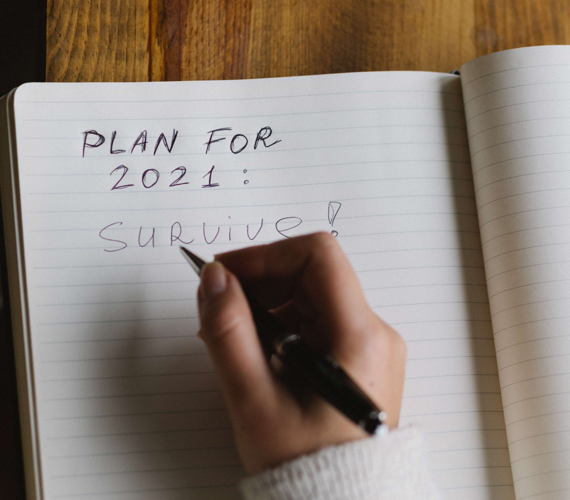 PLAN FOR
2021:
SURVIVE!